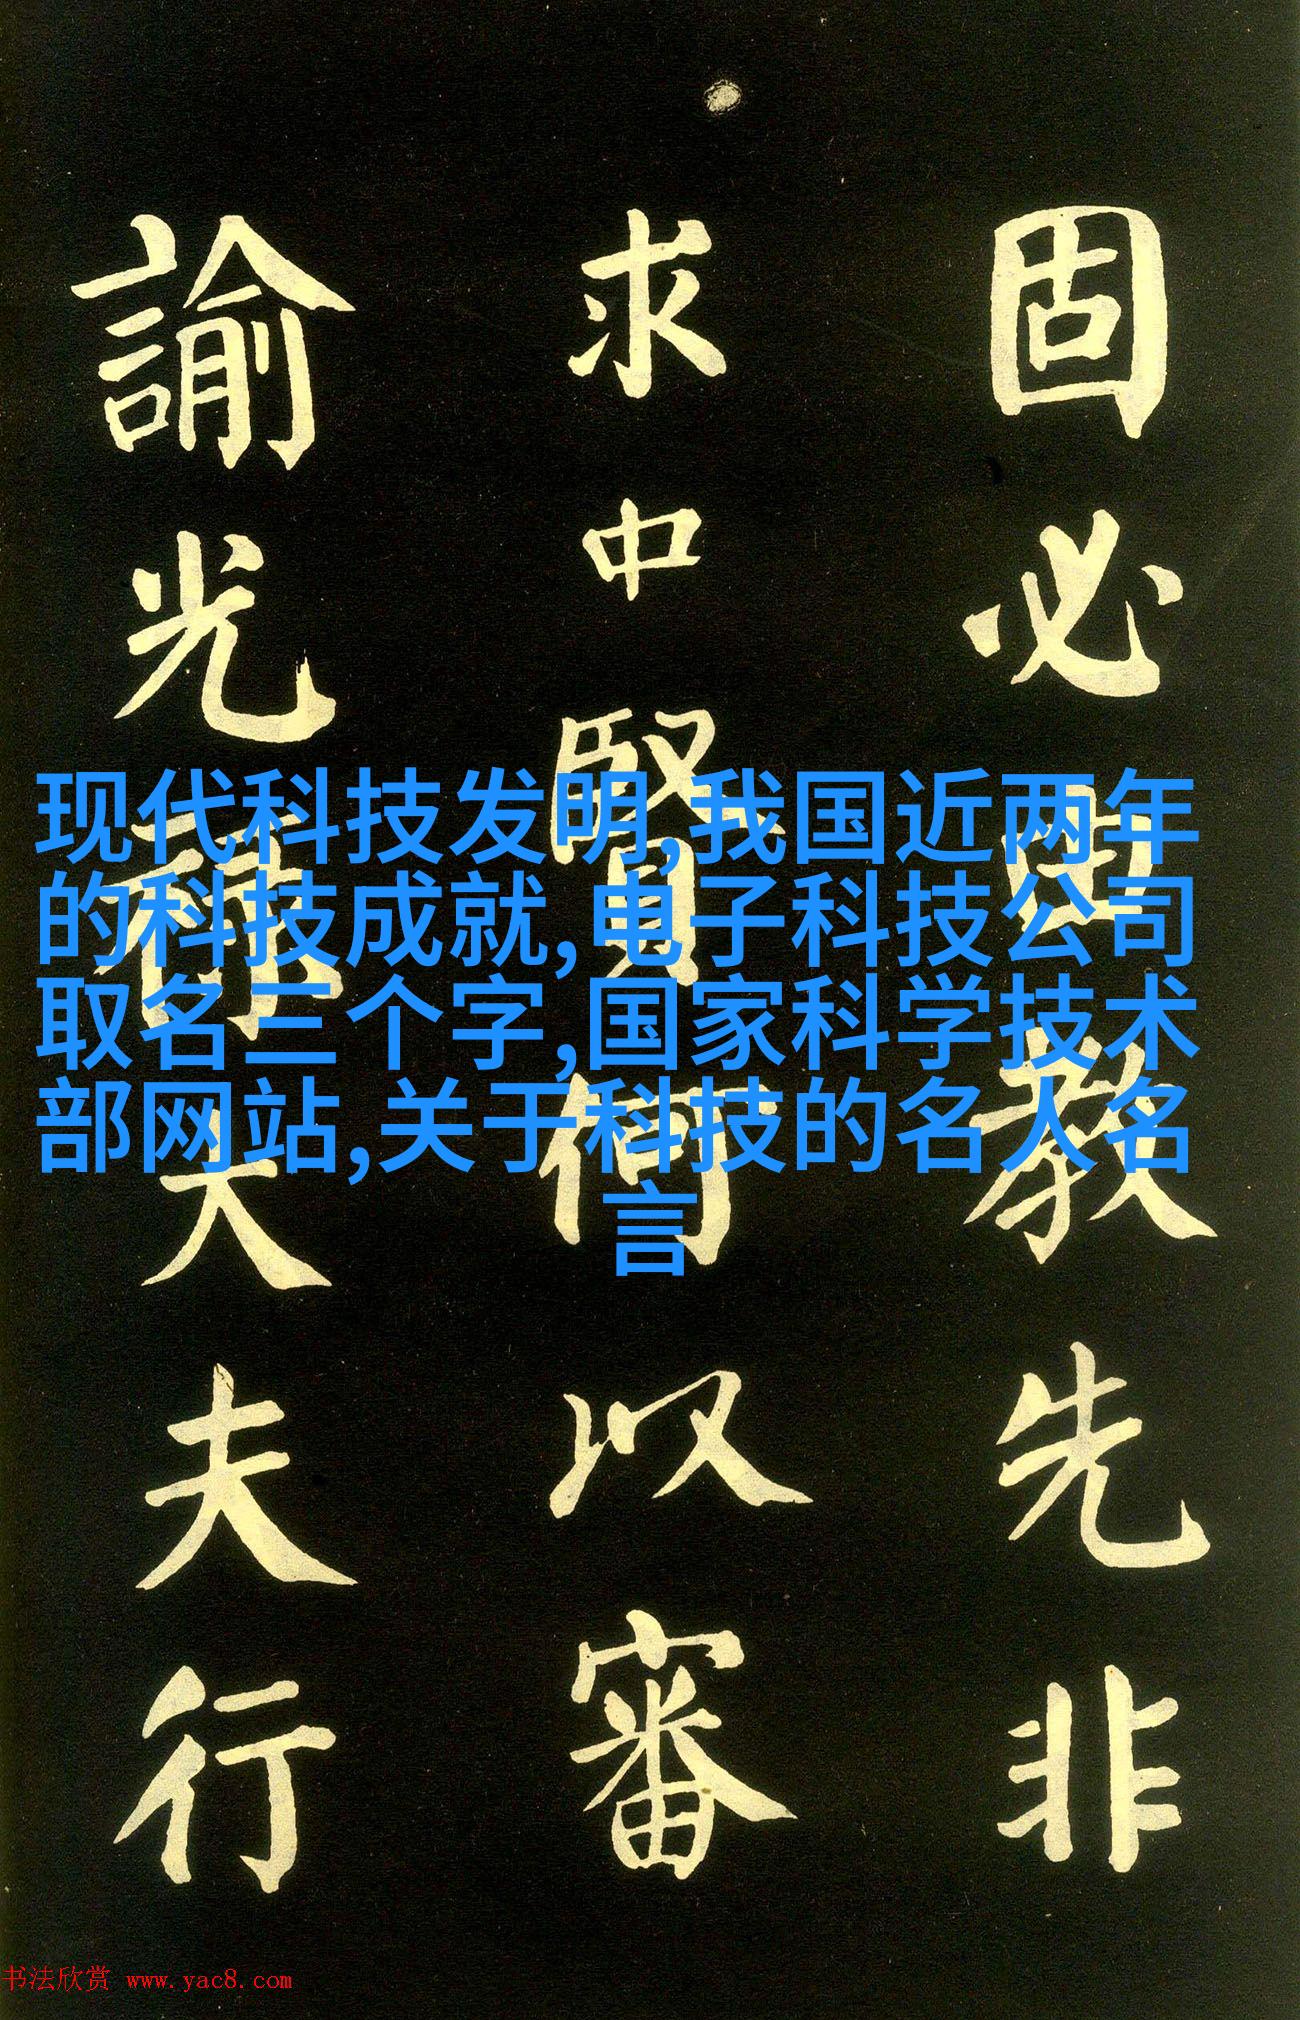 固必由教先非
求中賢何以審
諭光禄大夫行
现代科技发明,我国近两年
的科技成就,电子科技公司
取名三个字,国家科学技术
部网站,关于科技的名人名
言
书法欣赏 www.yac8.com